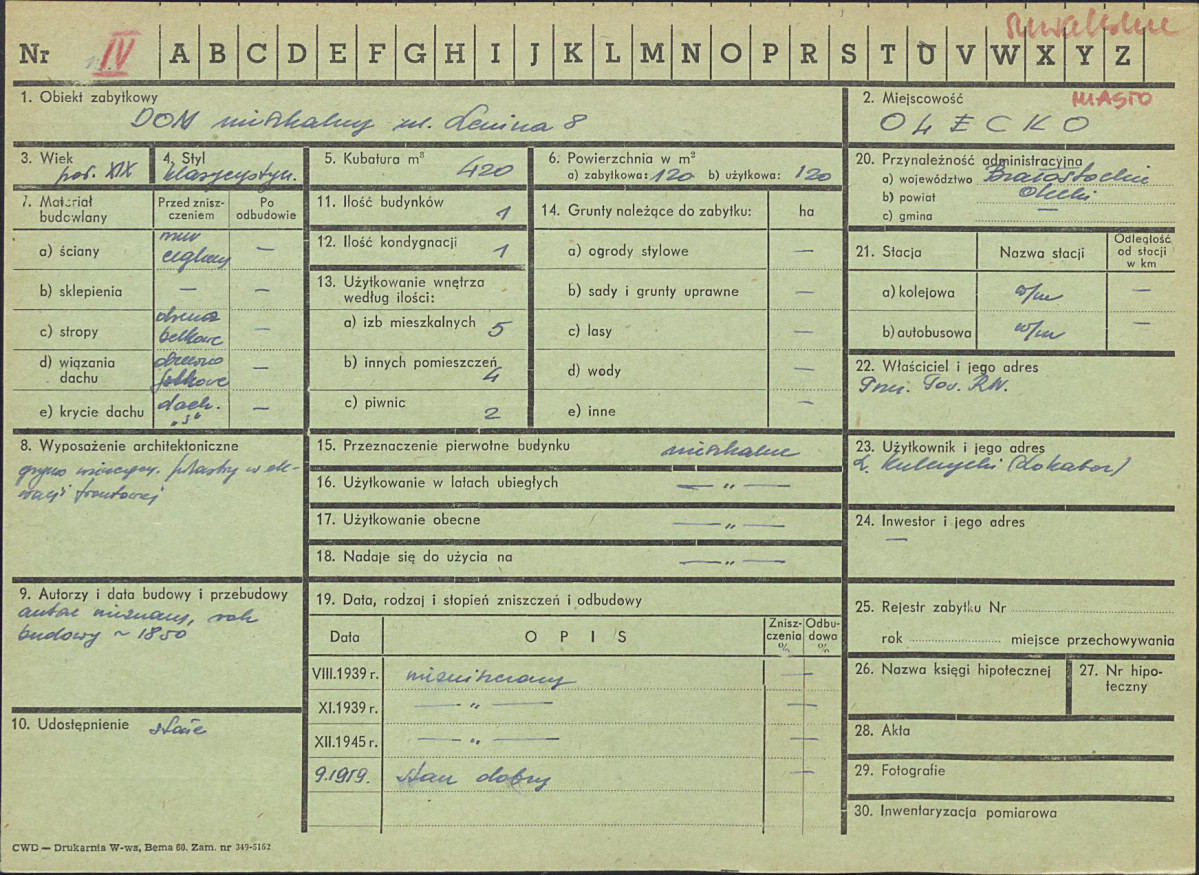 Suwalskie
Nr IV A B C D E F G H I J K L M N O P R S T U V W X Y Z
1. Obiekt zabytkowy
DOM mieszkalny ul. Lenina 8
2. Miejscowość MIASTO
OLECKO
3. Wiek
poł. XIX
4. Styl
klasycystyn.
5. Kubatura m³
420
6. Powierzchnia w m²
a) zabytkowa: 120 b) użytkowa: 120
20. Przynależność administracyjna
a) województwo Białostockie
b) powiat Olecki
c) gmina —
7. Materiał budowlany
Przed zniszczeniem
Po odbudowie
a) ściany mur ceglany —
b) sklepienia — —
c) stropy drewn belkowe —
d) wiązania dachu drewno —
e) krycie dachu dach. „S" —
11. Ilość budynków 1
12. Ilość kondygnacji 1
13. Użytkowanie wnętrza
według ilości:
a) izb mieszkalnych 5
b) innych pomieszczeń 4
c) piwnic 2
14. Grunty należące do zabytku: ha
a) ogrody stylowe —
b) sady i grunty uprawne —
c) lasy —
d) wody —
e) inne —
21. Stacja Nazwa stacji Odległość od stacji w km
a) kolejowa w/m —
b) autobusowa w/m —
22. Właściciel i jego adres
Prez. Pow. RN.
8. Wyposażenie architektoniczne
gzyms wieńczący. pilastry w ele-
wacji frontowej
15. Przeznaczenie pierwotne budynku mieszkalne
16. Użytkowanie w latach ubiegłych — „ —
17. Użytkowanie obecne — „ —
18. Nadaje się do użycia na — „ —
23. Użytkownik i jego adres
(lokator)
24. Inwestor i jego adres
—
9. Autorzy i data budowy i przebudowy
autor nieznany, rok
budowy ~ 1850
10. Udostępnienie stałe
19. Data, rodzaj i stopień zniszczeń i odbudowy
Data OPIS Zniszczenia % Odbudowa %
VIII.1939 r. niezniszczony —
XI.1939 r. — „ — —
XII.1945 r. — „ — —
9.1959. stan dobry —
25. Rejestr zabytku Nr
rok miejsce przechowywania
26. Nazwa księgi hipotecznej
27. Nr hipoteczny
28. Akta
29. Fotografie
30. Inwentaryzacja pomiarowa
CWD — Drukarnia W-wa, Bema 60. Zam. nr 349-5162